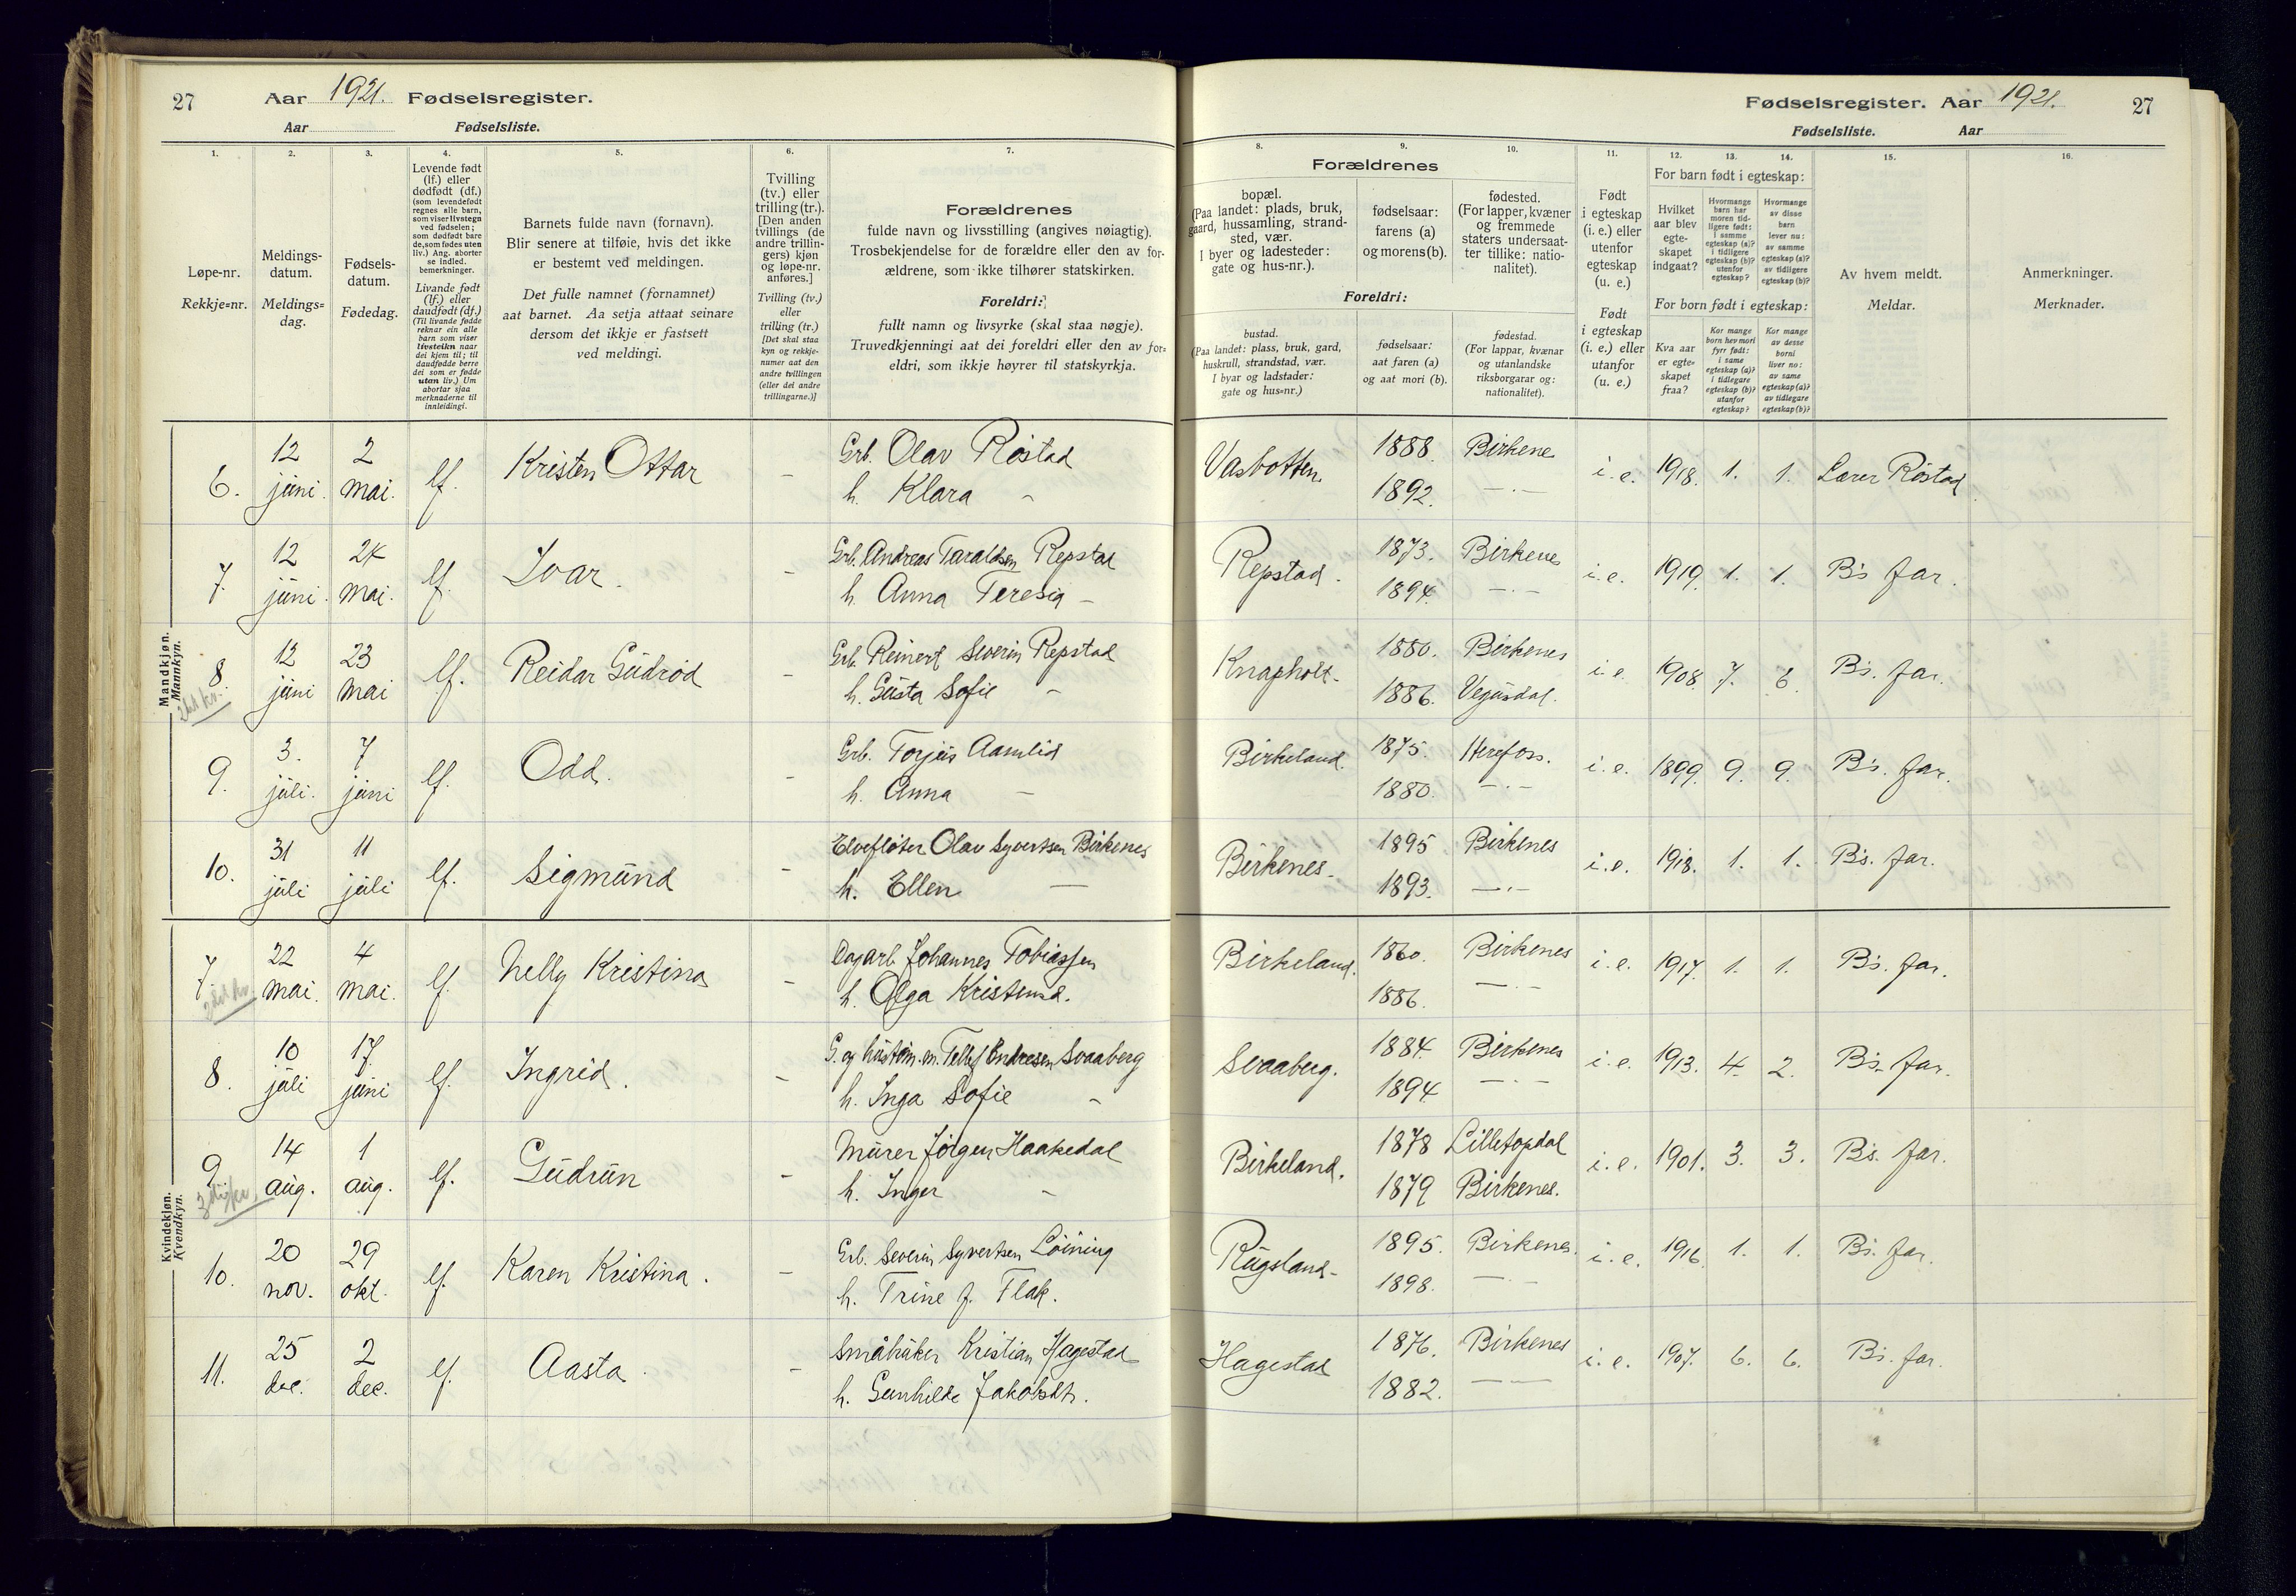 27 Aar 1921. Fødselsregister.
Aar Fødselsliste.
1.
2.
3.
4.
5.
6.
7.
Løpe-nr.
Rekkje=nr.
Meldings-
datum.
Meldings=
dag.
Fødsels-
datum.
Fødedag.
Levende født
(lf.) eller
dødfødt (df.)
(som levendefødt
regnes alle barn,
som viser livstegn
ved fødselen;
som dødfødt bare
de, som fødes uten
liv.) Ang. aborter
se indled.
bemerkninger.
Livande født
(lf.) eller
daudfødt (df.)
(Til livande fødde
reknar ein alle
barn som viser
livsteikn naar
dei kjem til; til
daudfødde berre
dei som er fødde
utan liv.) Um
abortar sjaa
merknaderne til
innleidingi.
Barnets fulde navn (fornavn).
Blir senere at tilføie, hvis det ikke
er bestemt ved meldingen.
Det fulle namnet (fornamnet)
aat barnet. Aa setja attaat seinare
dersom det ikkje er fastsett
ved meldingi.
Tvilling
(tv.) eller
trilling (tr.).
[Den anden
tvillings (de
andre trillin-
gers) kjøn
og løpe-nr.
anføres.]
Tvilling (tv.)
eller
trilling (tr.)
[Det skal staa
kyn og rekkje-
numer aat den
andre tvillingen
(eller dei andre
trillingarne.)]
Forældrenes
fulde navn og livsstilling (angives nøiagtig).
Trosbekjendelse for de forældre eller den av for-
ældrene, som ikke tilhører statskirken.
Foreldri:
fullt namn og livsyrke (skal staa nøgje).
Truvedkjenningi aat dei foreldri eller den av for=
eldri, som ikkje høyrer til statskyrkja.
Mandkjøn.
Mannkyn.
6. 12 juni. 2 mai. lf. Kristen Ottar – Grb. Olav Røstad
h. Klara –
7. 12 juni. 24 mai. lf. Ivar. – Grb. Andreas Taraldsen Repstad
h. Anna Teresia –
8. 12 juni 23 mai lf. Reidar Gudrød – Grb. Reinert Severin Repstad
h. Gusta Sofie –
9. 3. juli. 7 juni lf. Odd. – Grb. Torjus Aamlid
h. Anna –
10. 31 juli 11 juli lf. Sigmund – Elvefløter Olav Syvertsen Birkenes
h. Ellen –
Kvindekjøn.
Kvendkyn.
7. 22 mai. 4 mai. lf. Nelly Kristina – Dagarb. Johannes Tobiassen
h. Olga Kristensd.
8. 10 juli 17 juni lf. Ingrid. – G. og hustøm.m. Tellef Endresen Svaaberg
h. Inga Sofie –
9. 14 aug. 1 aug. lf. Gudrun – Murer Jørgen Haakedal
h. Inger –
10. 20 nov. 29 okt. lf. Karen Kristina. – Grb. Severin Syvertsen Løining
h. Trine f. Flak.
11. 25 dec. 2 dec. lf. Aasta. – Småbruker Kristian Hagestad
h. Gunhilde Jakobsdt.
Fødselsregister. Aar 1921. 27
Fødselsliste. Aar
8.
9.
10.
11.
12.
13.
14.
15.
16.
Forældrenes
bopæl.
(Paa landet: plads, bruk,
gaard, hussamling, strand-
sted, vær.
I byer og ladesteder:
gate og hus-nr.).
fødselsaar:
farens (a)
og morens (b).
fødested.
(For lapper, kvæner
og fremmede
staters undersaat-
ter tillike: natio-
nalitet).
Foreldri:
bustad.
(Paa landet: plass, bruk, gard,
huskrull, strandstad, vær.
I byar og ladstader:
gate og hus=nr.)
fødselsaar:
aat faren (a)
og aat mori (b).
fødestad.
(For lappar, kvænar
og utanlandske
riksborgarar og:
nationalitet).
Født
i egteskap
(i. e.) eller
utenfor
egteskap
(u. e.)
Født
i egteskap
(i. e.) eller
utanfor
(u. e.)
For barn født i egteskap:
Hvilket
aar blev
egte-
skapet
indgaat?
Hvormange
barn har
moren tid-
ligere født:
i samme
egteskap (a)?
i tidligere
egteskap (b)?
utenfor
egteskap?
Hvormange
av disse
barn
lever nu:
av samme
egteskap (a)?
av tidligere
egteskap (b)?
For born født i egteskap:
Kva aar
er egte-
skapet
fraa?
Kor mange
born hev mori
fyrr født:
i same
egteskap (a)?
i tidlegare
egteskap (b)?
utanfor
egteskap?
Kor mange
av desse
borni
liver no:
av same
egteskap (a)?
av tidlegare
egteskap (b)?
Av hvem meldt.
Meldar.
Anmerkninger.
Merknader.
Vasbotten. 1888. Birkene i. e. 1918. 1. 1. Lærer Røstad
1892. –"–
Repstad. 1873. Birkenes i. e. 1919. 1. 1. B's far.
1894. –"–
Knapholt. 1880. Birkenes i. e. 1908. 7. 6. B's. far.
1886. Vegusdal.
Birkeland. 1875. Herefoss. i. e. 1899. 9. 9. B's. far.
1880. –"–
Birkenes. 1895 Birkenes i. e. 1918. 1. 1. B's. far.
1893. –"–
Birkeland. 1860. Birkenes i. e. 1917. 1. 1. B's. far.
1886. –"–
Svaaberg. 1884. Birkenes i. e. 1913. 4. 2. B's. far.
1894 –"–
Birkeland. 1878 Lilletopdal i. e. 1901. 3. 3. B's. far.
1879 Birkenes.
Rugsland. 1895. Birkenes. i. e. 1916. 1. 1. B's. far.
1898. –"–
Hagestad 1876. Birkenes i. e. 1907. 6. 6. B's. far.
1882. –"–